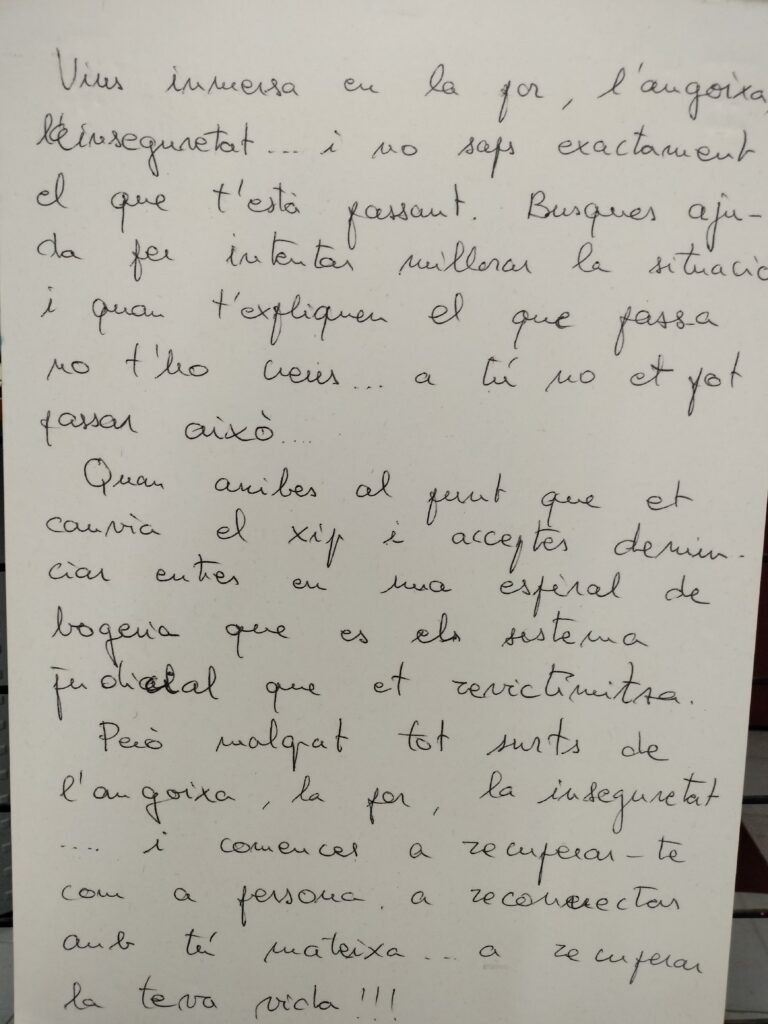 Vius inmersa en la por, l'angoixa,
l'inseguretat... i no saps exactament
el que t'està passant. Busques aju-
da per intentar millorar la situació
i quan t'expliquen el que passa
no t'ho creus... a tú no et pot
passar això....
Quan arribes al punt que et
canvia el xip i acceptes denun-
ciar entres en una espiral de
bogeria que es el sistema
judicial que et revictimitza.
Però malgrat tot surts de
l'angoixa, la por, la inseguretat
.... i comences a recuperar-te
com a persona. a reconnectar
amb tú mateixa... a recuperar
la teva vida!!!